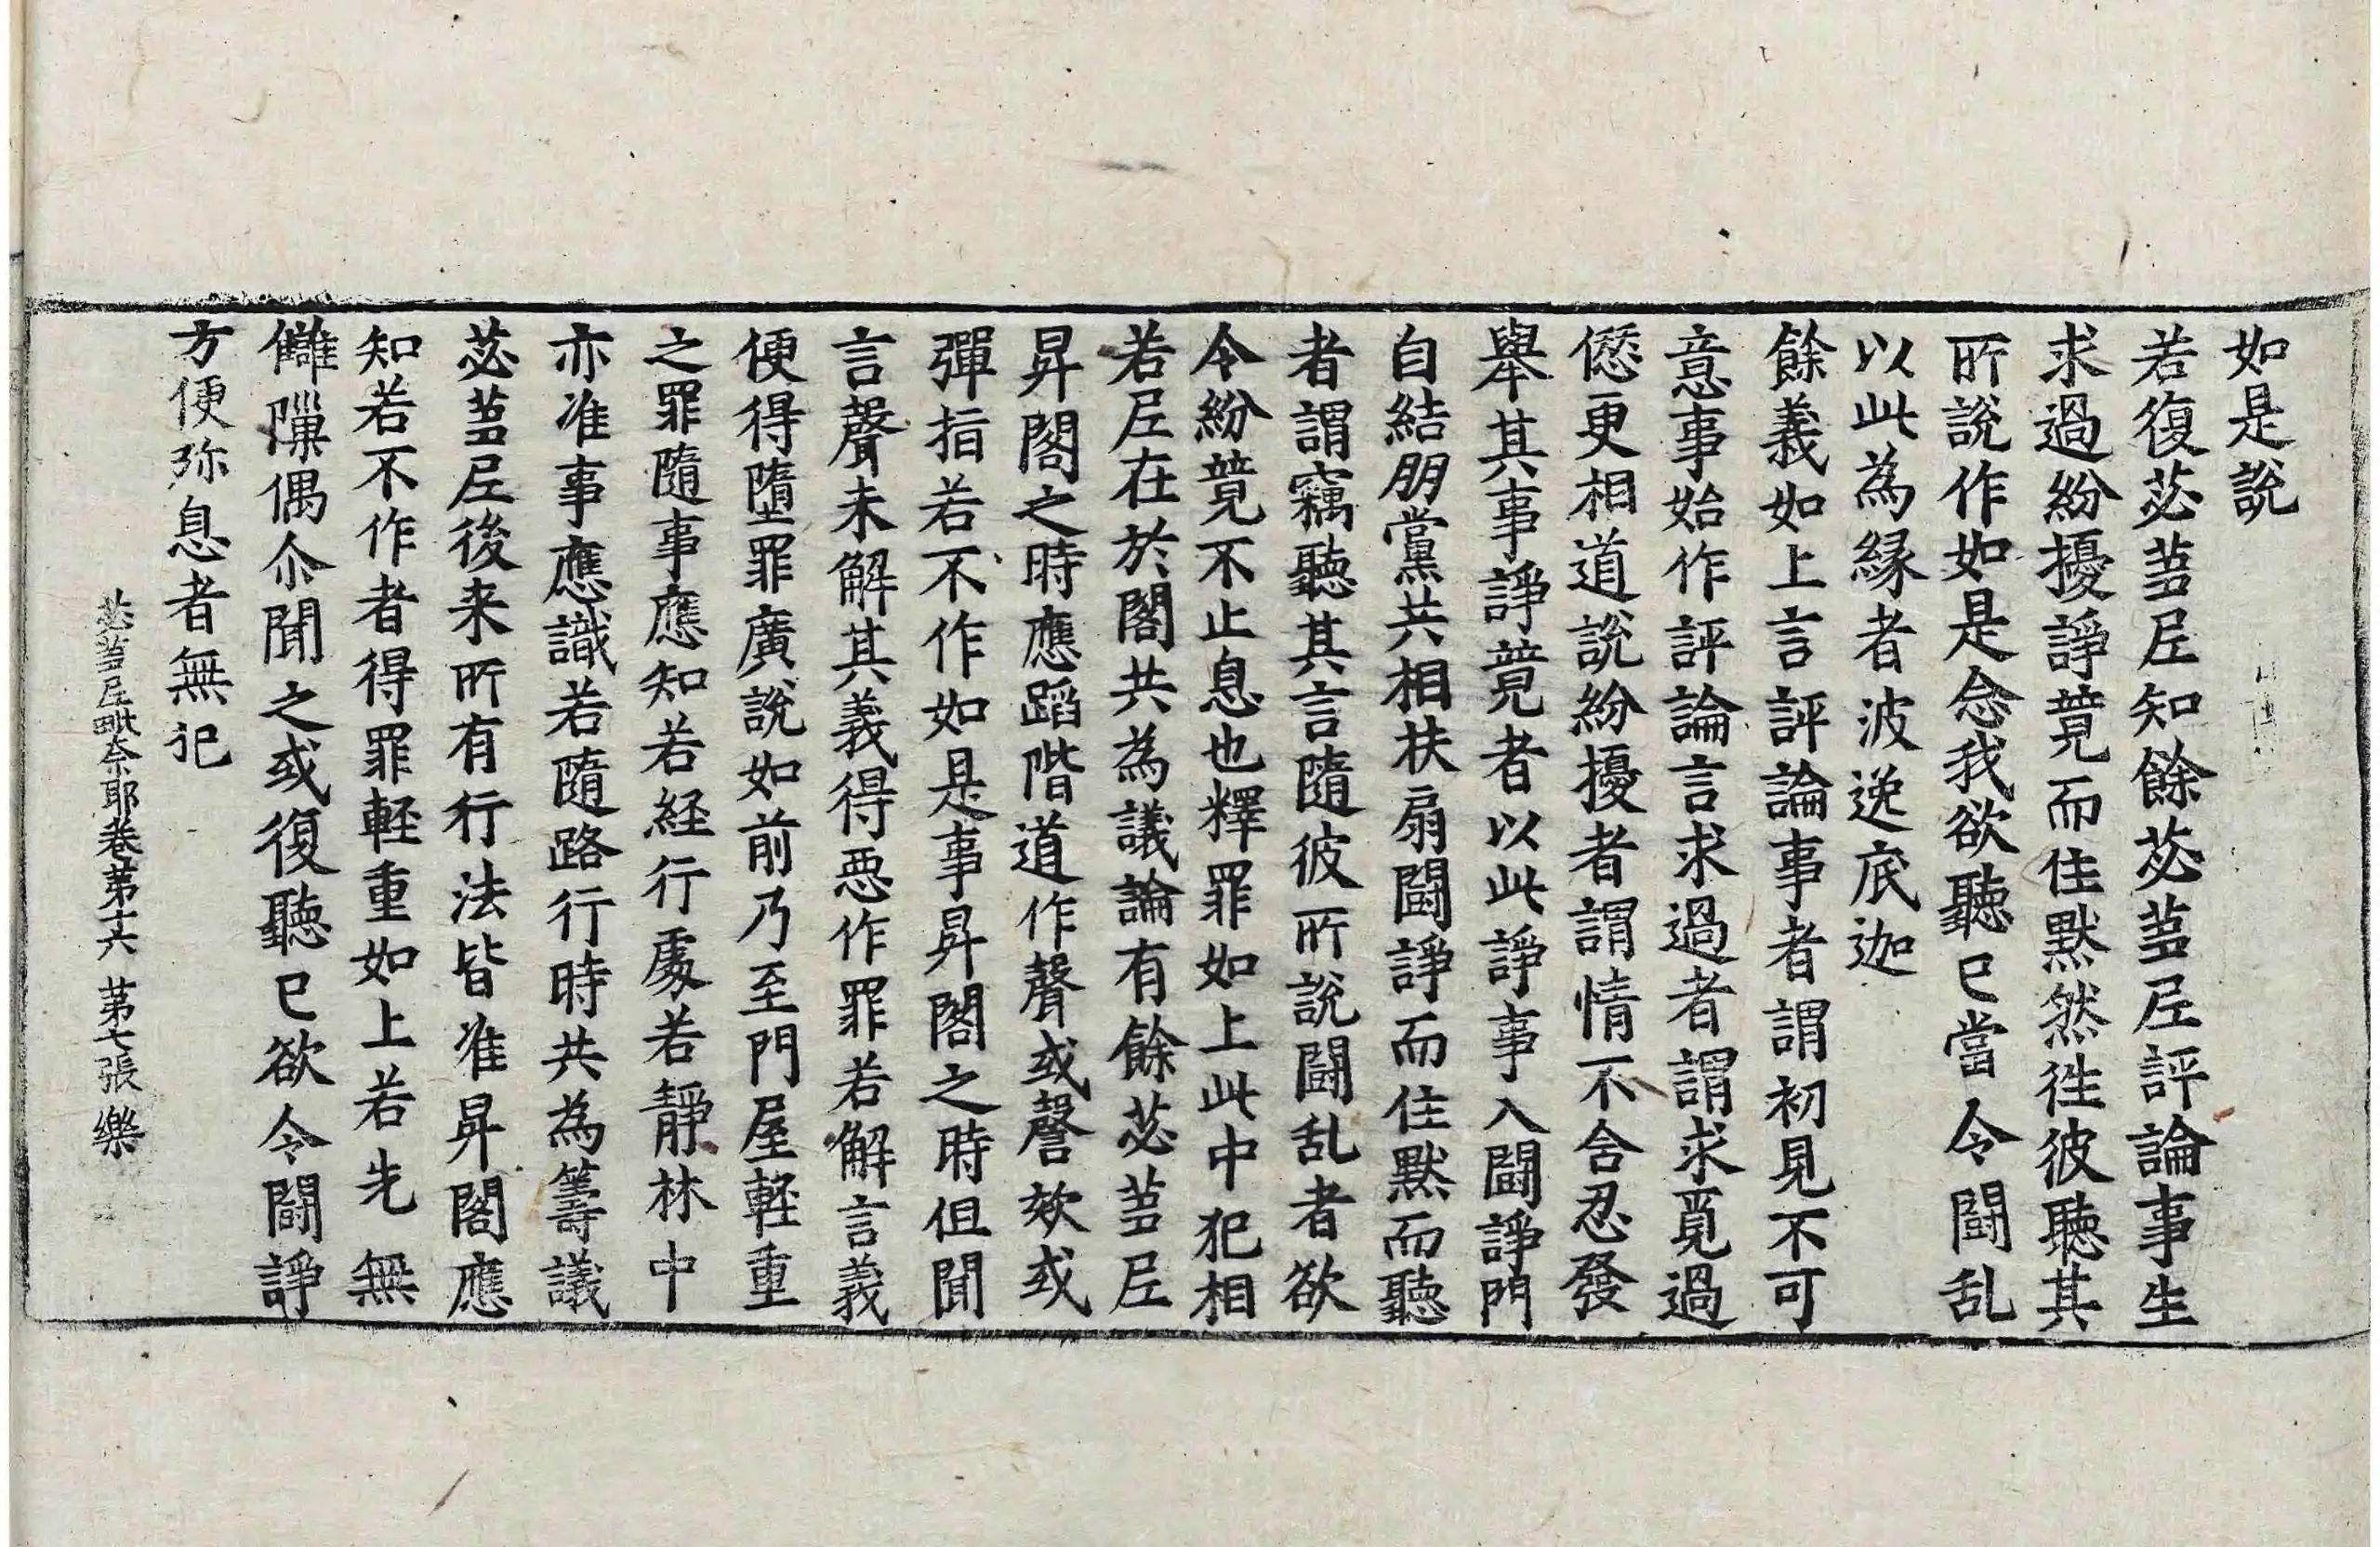 如是說
若復苾蒭尼知餘苾蒭尼評論事生
求過紛擾諍競而住默然徃彼聽其
所說作如是念我欲聽已當令鬪乱
以此為緣者波逸底迦
餘義如上言評論事者謂初見不可
意事始作評論言求過者謂求覓過
𠎝更相道說紛擾者謂情不含忍發
舉其事諍競者以此諍事入鬪諍門
自結朋黨共相扶扇鬪諍而住默而聽
者謂竊聽其言隨彼所說鬪乱者欲
令紛競不止息也釋罪如上此中犯相
若尼在於閣共為議論有餘苾蒭尼
昇閣之時應蹈階道作聲或謦欬或
彈指若不作如是事昇閣之時但聞
言聲未解其義得惡作罪若解言義
便得墮罪廣說如前乃至門屋輕重
之罪隨事應知若経行處若靜林中
亦准事應識若隨路行時共為籌議
苾蒭尼後来所有行法皆准昇閣應
知若不作者得罪軽重如上若先無
讎隟偶尒聞之或復聽已欲令鬪諍
方便弥息者無犯
苾蒭尼毗奈耶卷第十六 第七張 樂